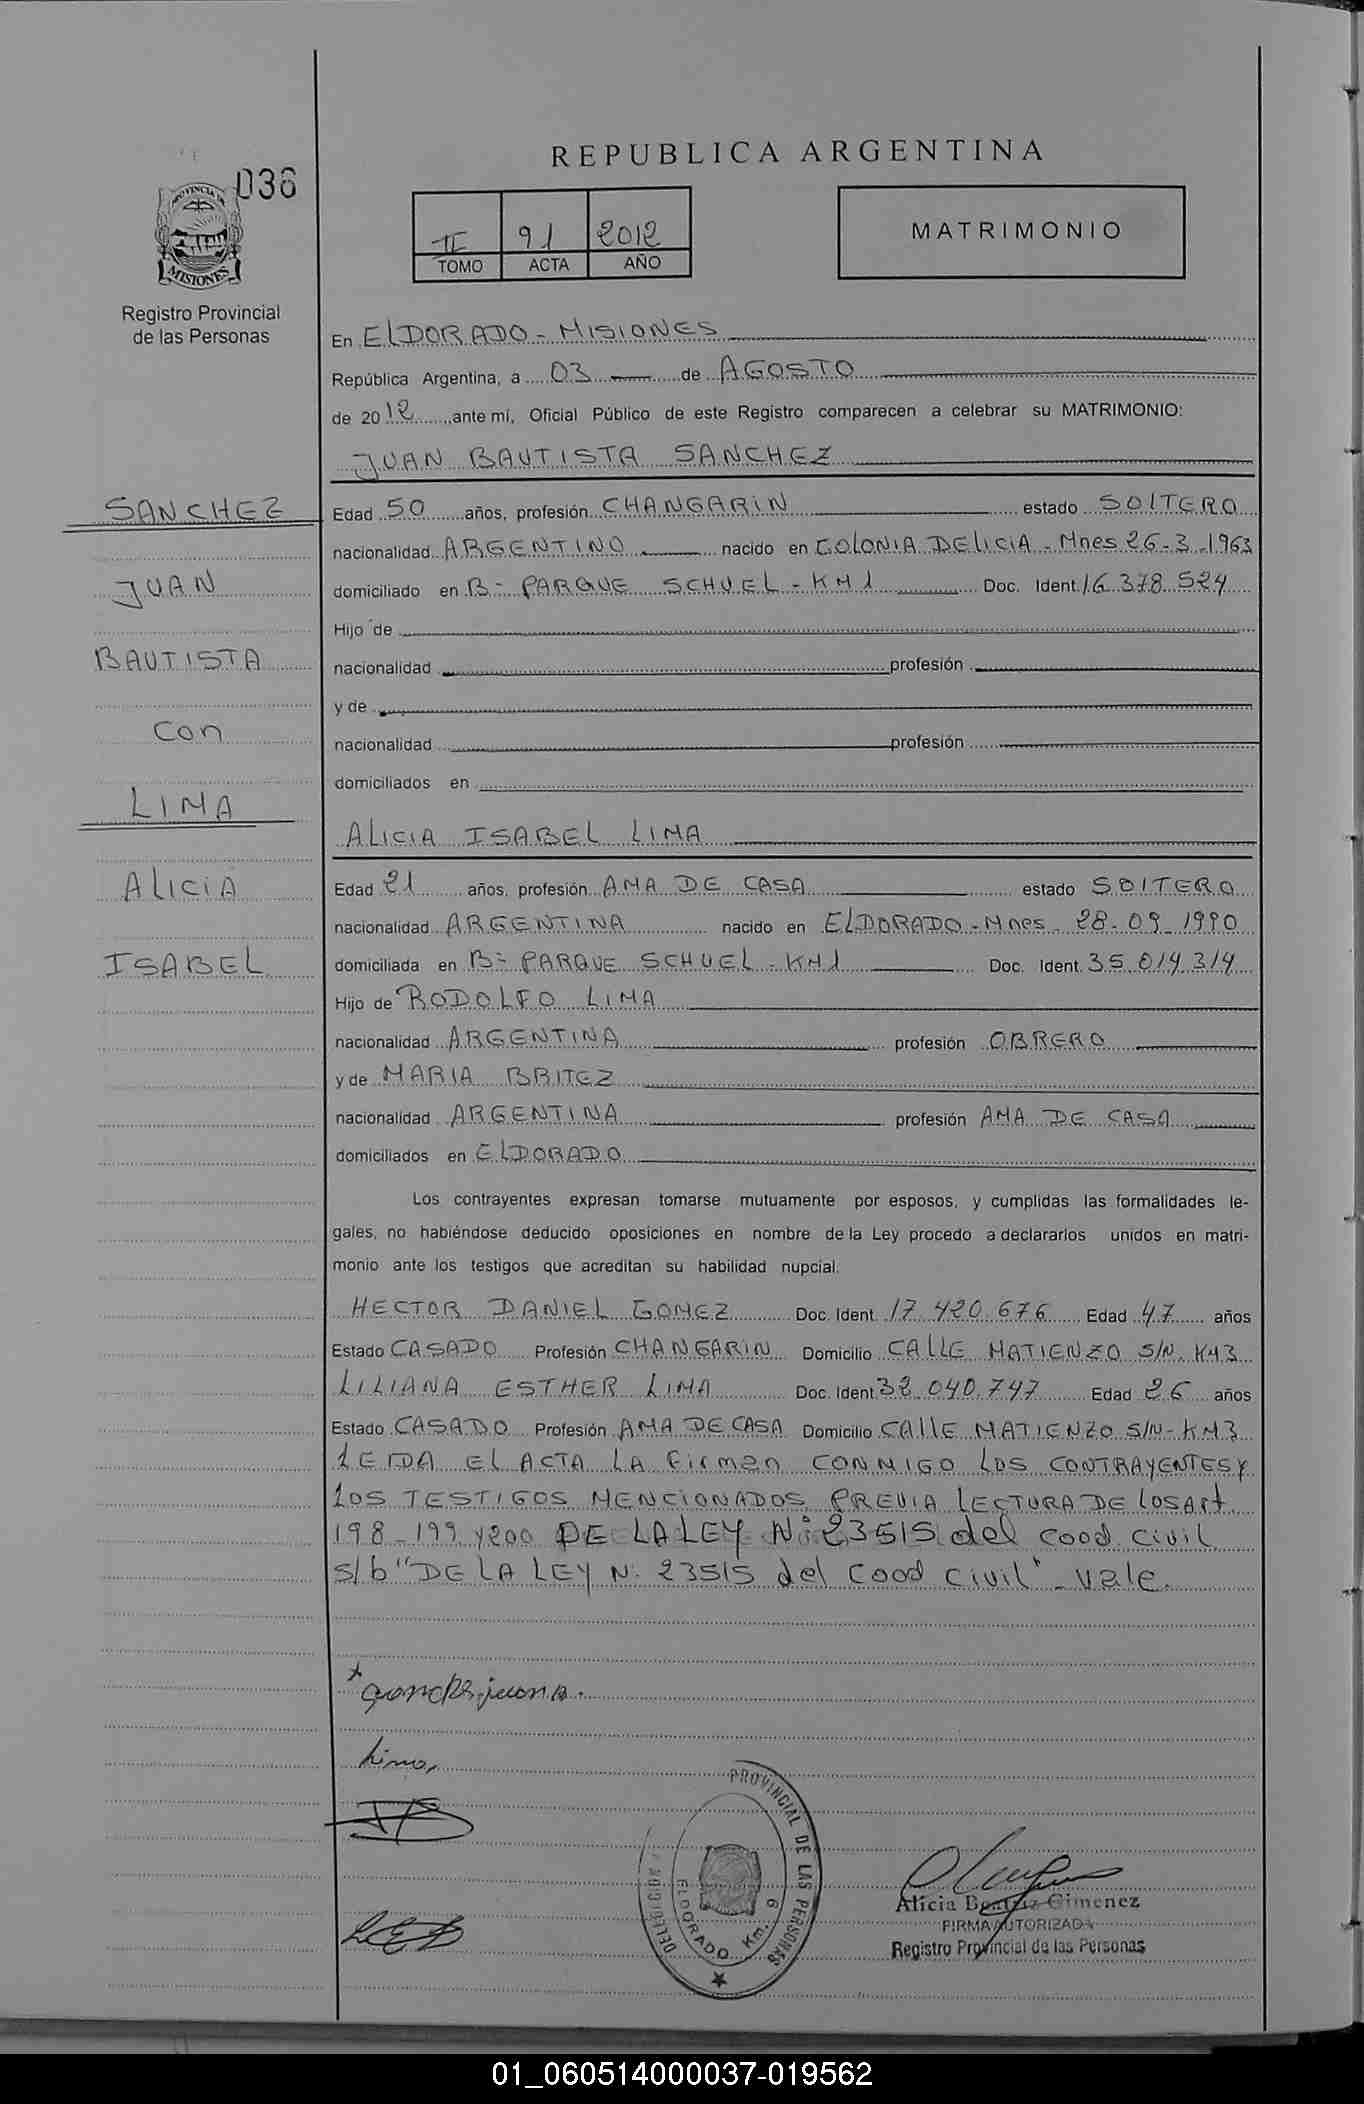 REPUBLICA ARGENTINA
036
PROVINCIA DE
MISIONES
Registro Provincial
de las Personas
II 91 2012
TOMO ACTA AÑO
MATRIMONIO
En ELDORADO - MISIONES
República Argentina, a 03 de AGOSTO
de 2012 ante mí, Oficial Público de este Registro comparecen a celebrar su MATRIMONIO:
JUAN BAUTISTA SANCHEZ
SANCHEZ
JUAN
BAUTISTA
Con
LIMA
ALICIA
ISABEL
Edad 50 años, profesión CHANGARIN estado SOLTERO
nacionalidad ARGENTINO nacido en COLONIA DELICIA - Mnes 26-3-1963
domiciliado en B= PARQUE SCHUEL - KM1 Doc. Ident. 16.378.524
Hijo de
nacionalidad profesión
y de
nacionalidad profesión
domiciliados en
ALICIA ISABEL LIMA
Edad 21 años, profesión AMA DE CASA estado SOLTERO
nacionalidad ARGENTINA nacido en ELDORADO - Mnes - 28-09-1990
domiciliada en B= PARQUE SCHUEL - KM1 Doc. Ident. 35.014.314
Hijo de RODOLFO LIMA
nacionalidad ARGENTINA profesión OBRERO
y de MARIA BRITEZ
nacionalidad ARGENTINA profesión AMA DE CASA
domiciliados en ELDORADO
Los contrayentes expresan tomarse mutuamente por esposos, y cumplidas las formalidades le-
gales, no habiéndose deducido oposiciones en nombre de la Ley procedo a declararlos unidos en matri-
monio ante los testigos que acreditan su habilidad nupcial.
HECTOR DANIEL GOMEZ Doc. Ident. 17.420.676 Edad 47 años
Estado CASADO Profesión CHANGARIN Domicilio CALLE MATIENZO S/N KM3
LILIANA ESTHER LIMA Doc. Ident. 32.040.747 Edad 26 años
Estado CASADO Profesión AMA DE CASA Domicilio CALLE MATIENZO S/N - KM3
LEIDA EL ACTA LA Firman CONMIGO LOS CONTRAYENTES Y
LOS TESTIGOS MENCIONADOS PREVIA LECTURA DE LOS Art.
198-199 y 200 DE LA LEY N: 23515 del cood civil
s/b "DE LA LEY N: 23515 del Cood civil" - vale.
Lima
PROVINCIAL DE LAS PERSONAS
ELDORADO Km. 9
Alicia Beatriz Gimenez
FIRMA AUTORIZADA
Registro Provincial de las Personas
01_060514000037-019562